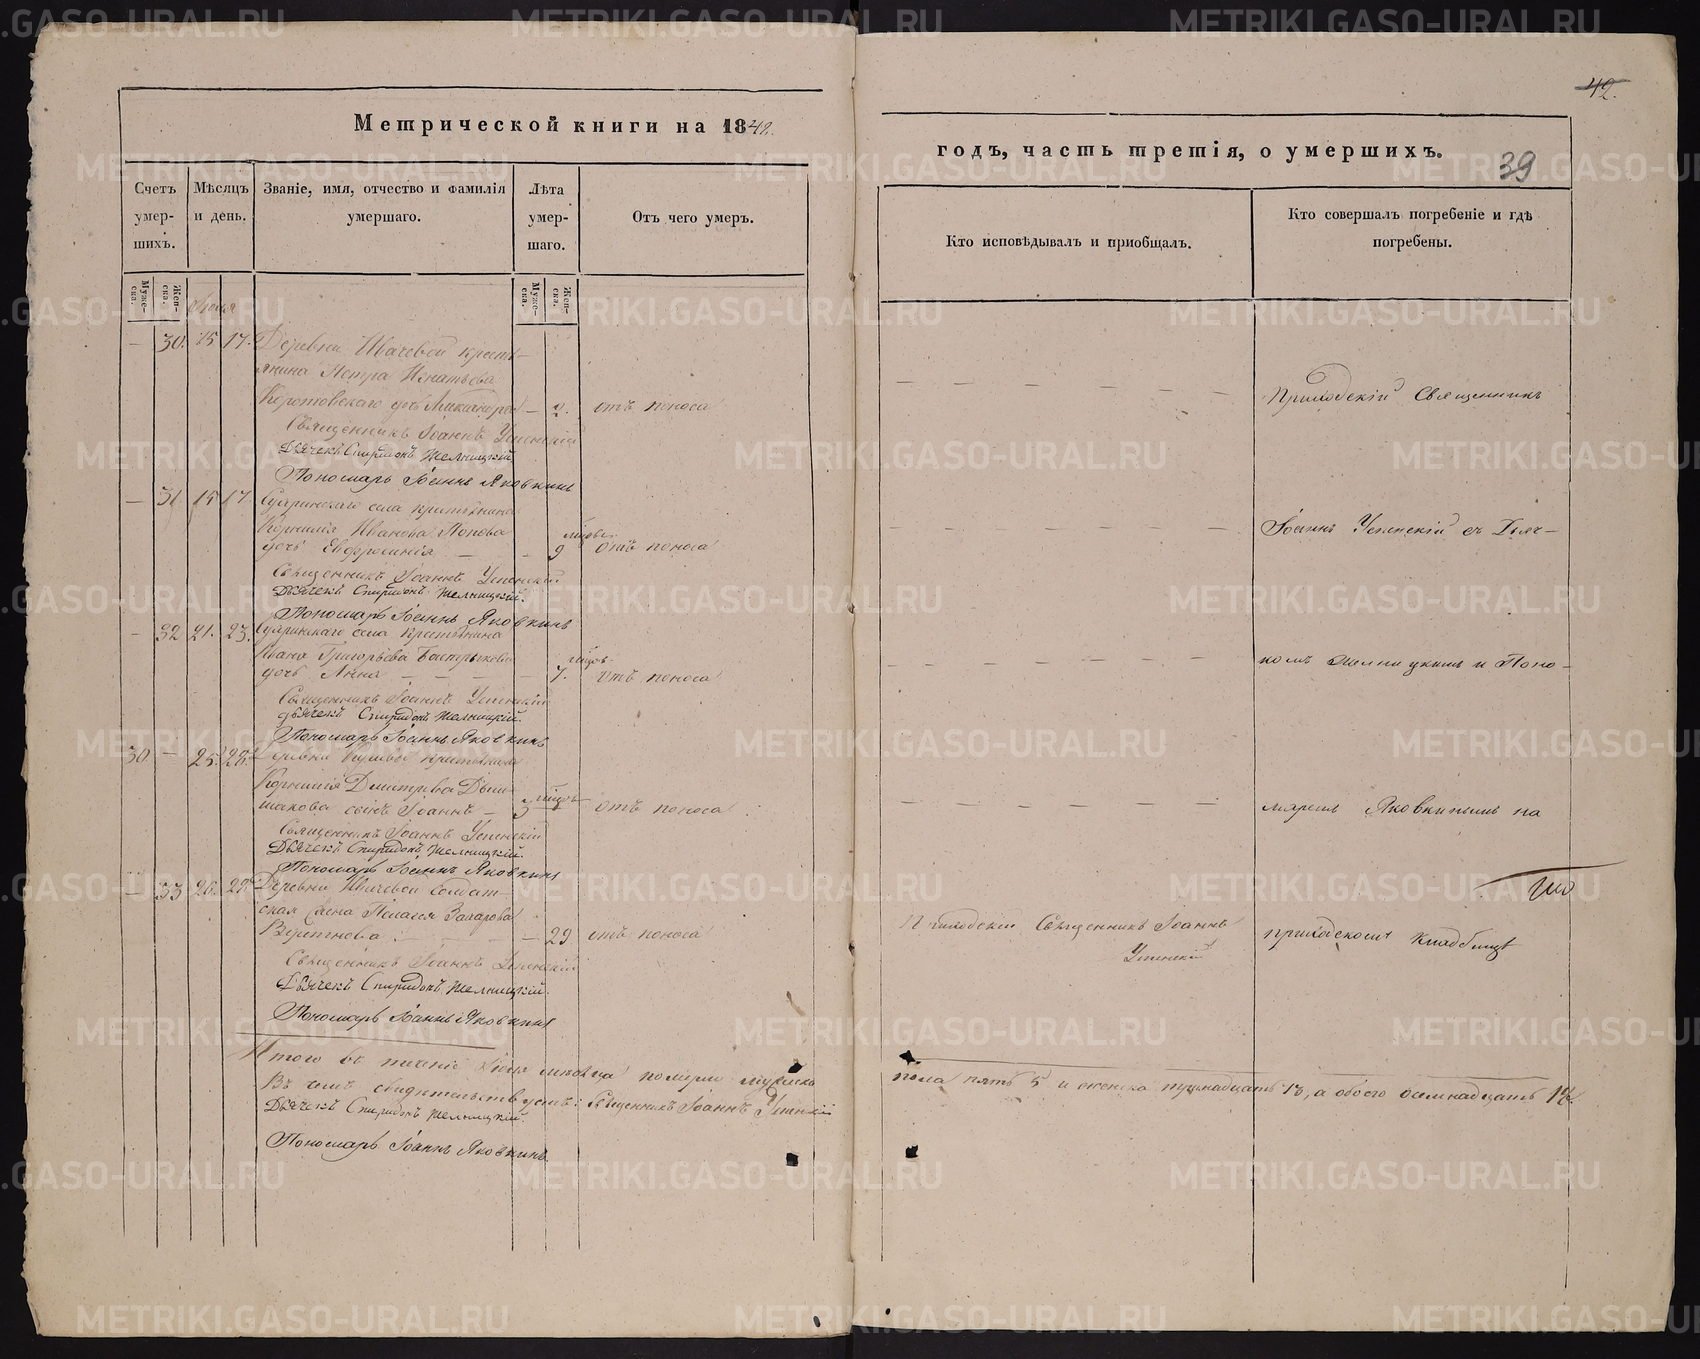 42.
Метрической книги на 1842.
годъ, часть третія, о умершихъ.
39
Счетъ умер- шихъ.
Мѣсяцъ и день.
Званіе, имя, отчество и фамилія умершаго.
Лѣта умер- шаго.
Отъ чего умеръ.
Кто исповѣдывалъ и пріобщалъ.
Кто совершалъ погребеніе и гдѣ погребены.
Муже- ска.
Жен- ска.
Муже- ска.
Жен- ска.
Іюля
— 30. 15 17. Деревни Ивачевой кресть-
янина Петра Игнатьева
дочь — 2. отъ поноса
Священникъ Іоаннъ Успенскій
Дьячекъ Спиридонъ Желницкій
Пономарь Іоаннъ Яковкинъ
— 31 15 17. села крестьянина
Корнилія Иванова Попова
дочь Евфросинія — — 9 отъ поноса
Священникъ Іоаннъ Успенскій
Дьячекъ Спиридонъ Желницкій.
Пономарь Іоаннъ Яковкинъ
— 32 21. 23. села крестьянина
Ивана Григорьева
дочь Анна — — — — 7. отъ поноса
Священникъ Іоаннъ Успенскій
Дьячекъ Спиридонъ Желницкій.
Пономарь Іоаннъ Яковкинъ
30 — 25. 28. Деревни крестьянина
Корнилія Дмитріева
шакова сынъ Іоаннъ — 3 отъ поноса
Священникъ Іоаннъ Успенскій
Дьячекъ Спиридонъ Желницкій.
Пономарь Іоаннъ Яковкинъ
— 33 26. 29. Деревни Ивачевой солдат-
ская жена Пелагея Захарова
— 29 отъ поноса
Священникъ Іоаннъ Успенскій
Дьячекъ Спиридонъ Желницкій.
Пономарь Іоаннъ Яковкинъ
Приходскій Священникъ Іоаннъ
Успенскій
Приходскій Священникъ
Іоаннъ Успенскій съ Дьяч-
комъ Желницкимъ и Поно-
маремъ Яковкинымъ на
приходскомъ кладбищѣ
Итого въ теченіе Іюля мѣсяца померло мужеска
пола пять 5 и женска тринадцать 13, а обоего осемнадцать 18.
Въ чемъ свидѣтельствуемъ: Священникъ Іоаннъ Успенскій
Дьячекъ Спиридонъ Желницкій.
Пономарь Іоаннъ Яковкинъ.
METRIKI.GASO-URAL.RU